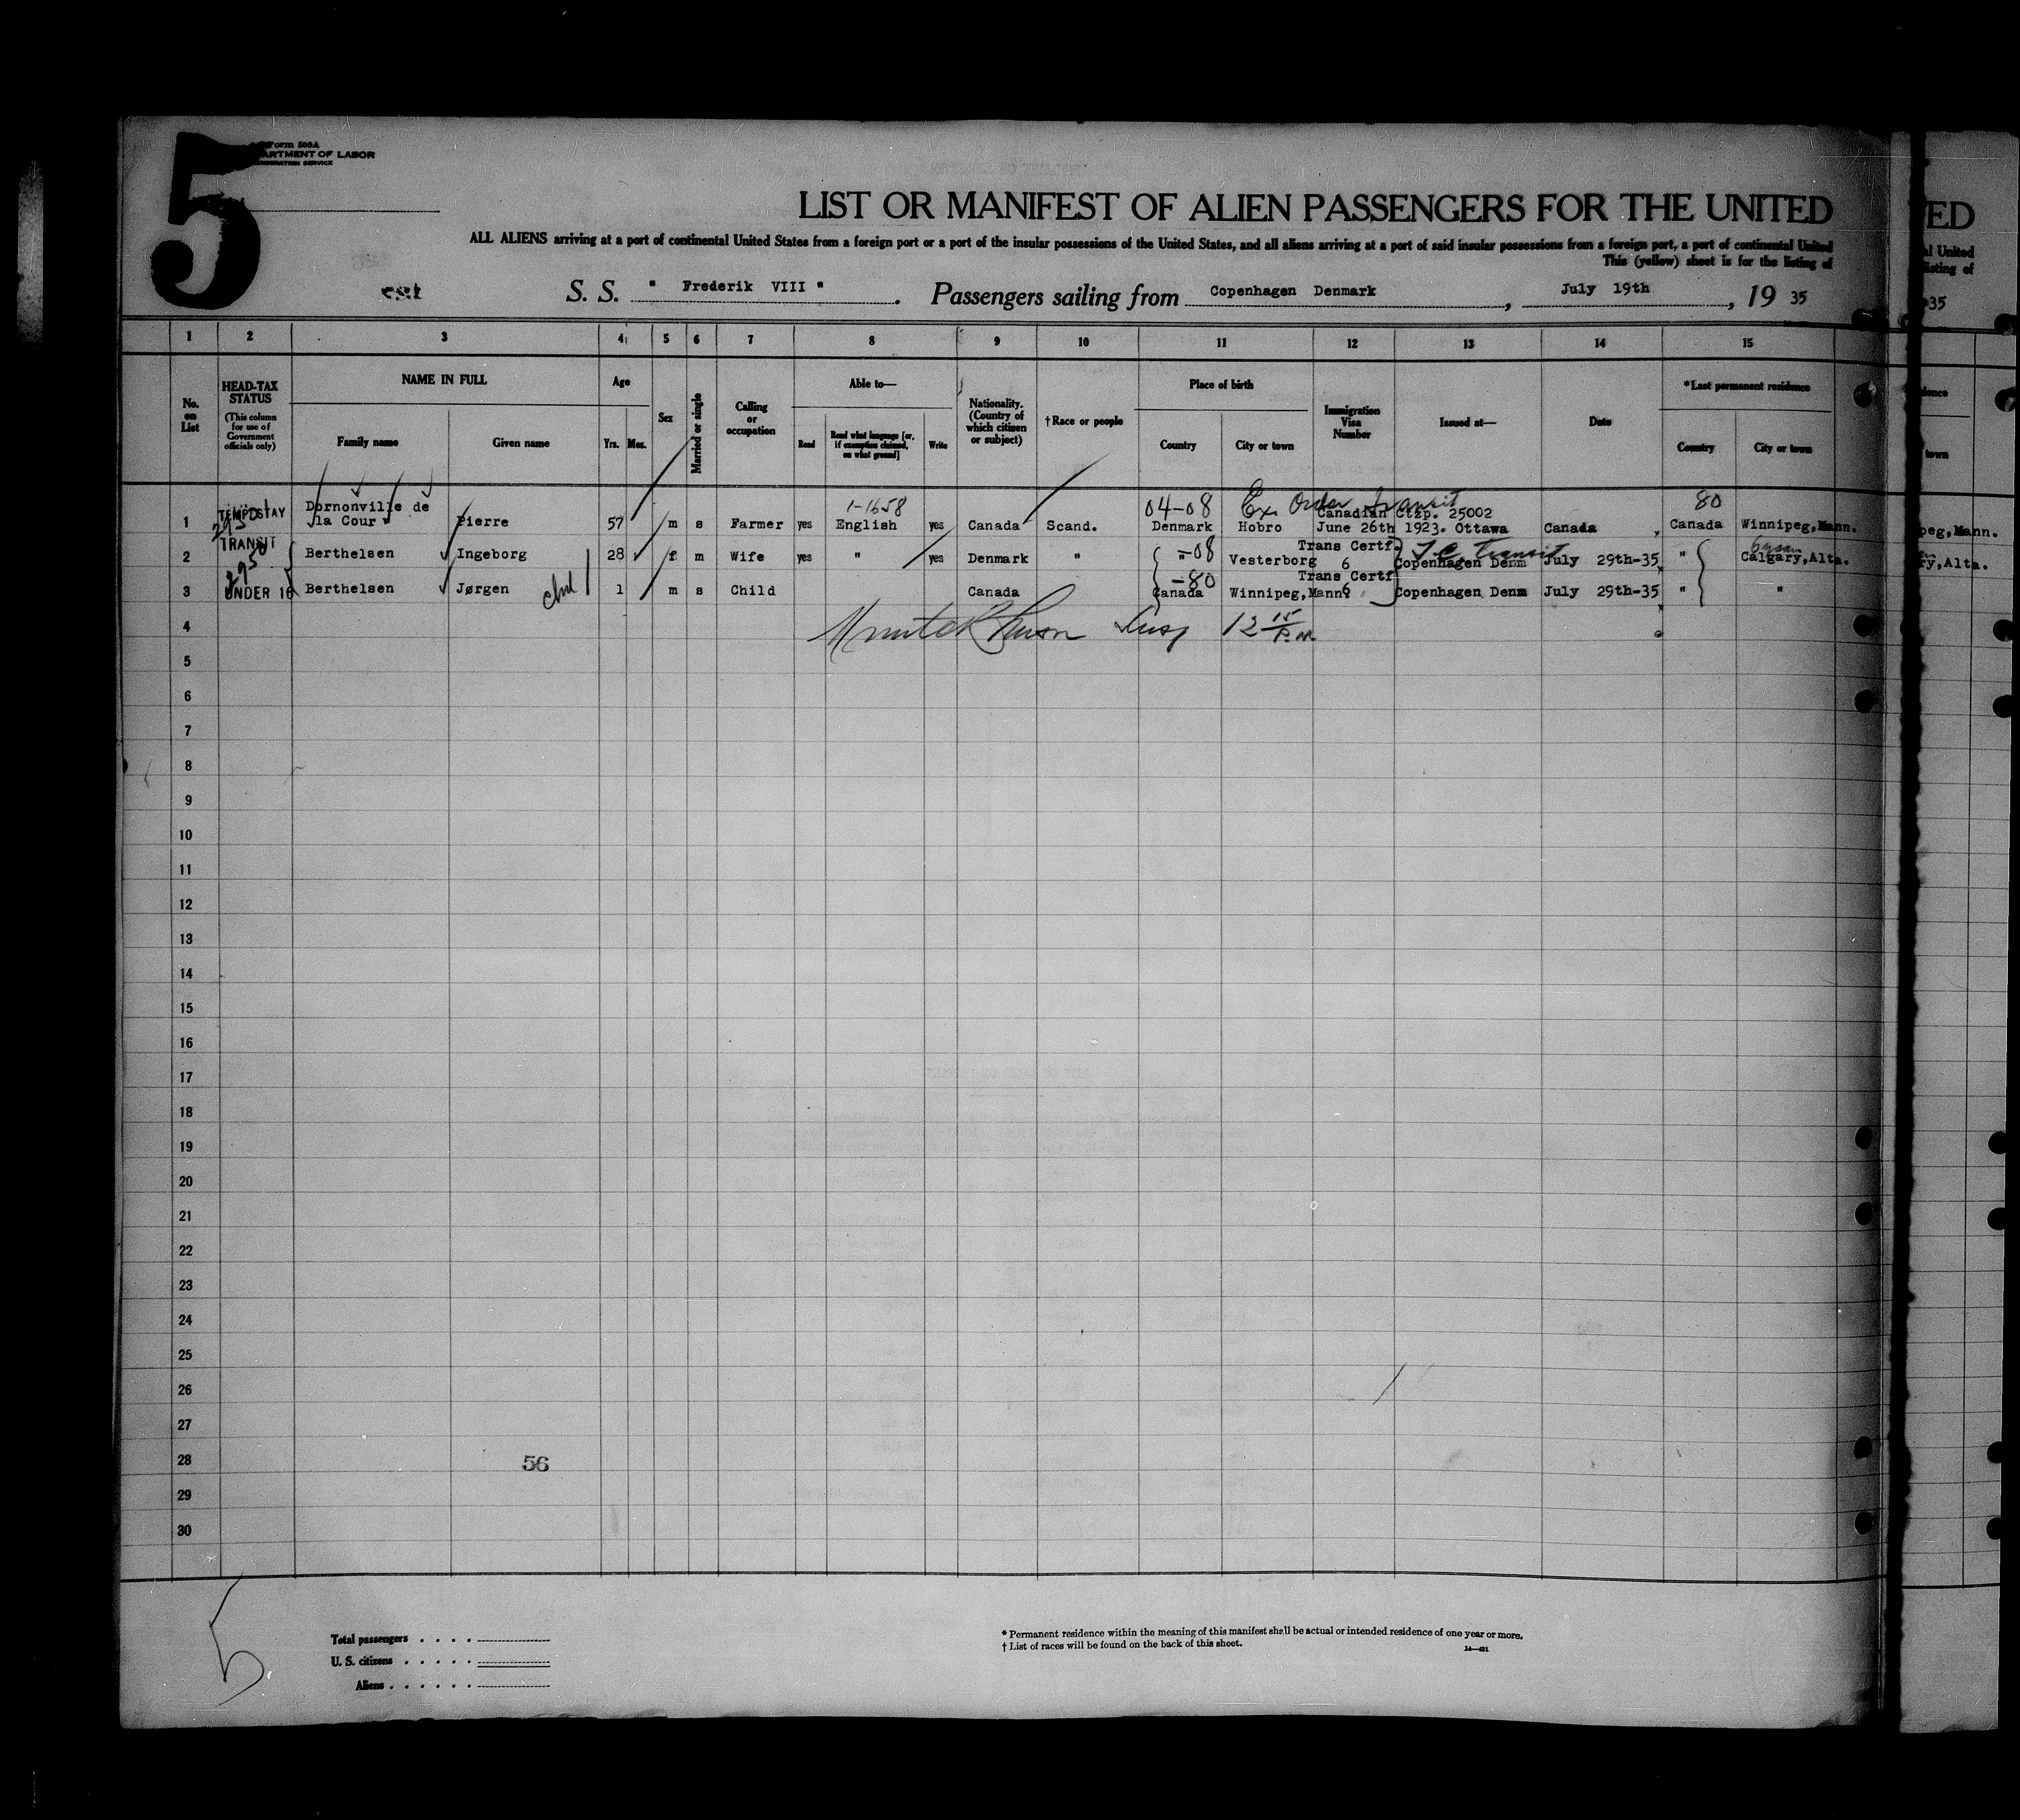 5
Form 500A
ARTMENT OF LABOR
IMMIGRATION SERVICE
LIST OR MANIFEST OF ALIEN PASSENGERS FOR THE UNITED
ALL ALIENS arriving at a port of continental United States from a foreign port or a port of the insular possessions of the United States, and all aliens arriving at a port of said insular possessions from a foreign port, a port of continental United
This (yellow) sheet is for the listing of
S. S. " Frederik VIII " . Passengers sailing from Copenhagen Denmark , July 19th , 19 35
1 2 3 4 5 6 7 8 9 10 11 12 13 14 15
No. on List
HEAD-TAX STATUS (This column for use of Government officials only)
NAME IN FULL
Family name Given name
Age
Yrs. Mos.
Sex
Married or single
Calling or occupation
Able to—
Read Read what language [or, if exemption claimed, on what ground] Write
Nationality. (Country of which citizen or subject)
†Race or people
Place of birth
Country City or town
Immigration Visa Number
Issued at—
Date
*Last permanent residence
Country City or town
1-1658 04-08 Ex. Order Transit 80
TEMP STAY Dornonville de Canadian Ctzp. 25002
1 2950 la Cour Pierre 57 m s Farmer yes English yes Canada Scand. Denmark Hobro June 26th 1923. Ottawa Canada Canada Winnipeg,Mann.
TRANSIT -08 Trans Certf. T.C. Transit
2 2950 Berthelsen Ingeborg 28 f m Wife yes " yes Denmark " " Vesterborg 6 Copenhagen Denm July 29th-35 " Calgary,Alta.
-80 Trans Certf
3 UNDER 16 Berthelsen Jørgen 1 m s Child Canada Canada Winnipeg,Mann. 6 Copenhagen Denm July 29th-35 " "
4 Insp 12 15 P.M.
5
6
7
8
9
10
11
12
13
14
15
16
17
18
19
20
21
22
23
24
25
26
27
28 56
29
30
5
Total passengers
U. S. citizens
Aliens
* Permanent residence within the meaning of this manifest shall be actual or intended residence of one year or more.
† List of races will be found on the back of this sheet.
ED
al United
listing of
35
dence
town
peg,Mann.
ry,Alta.